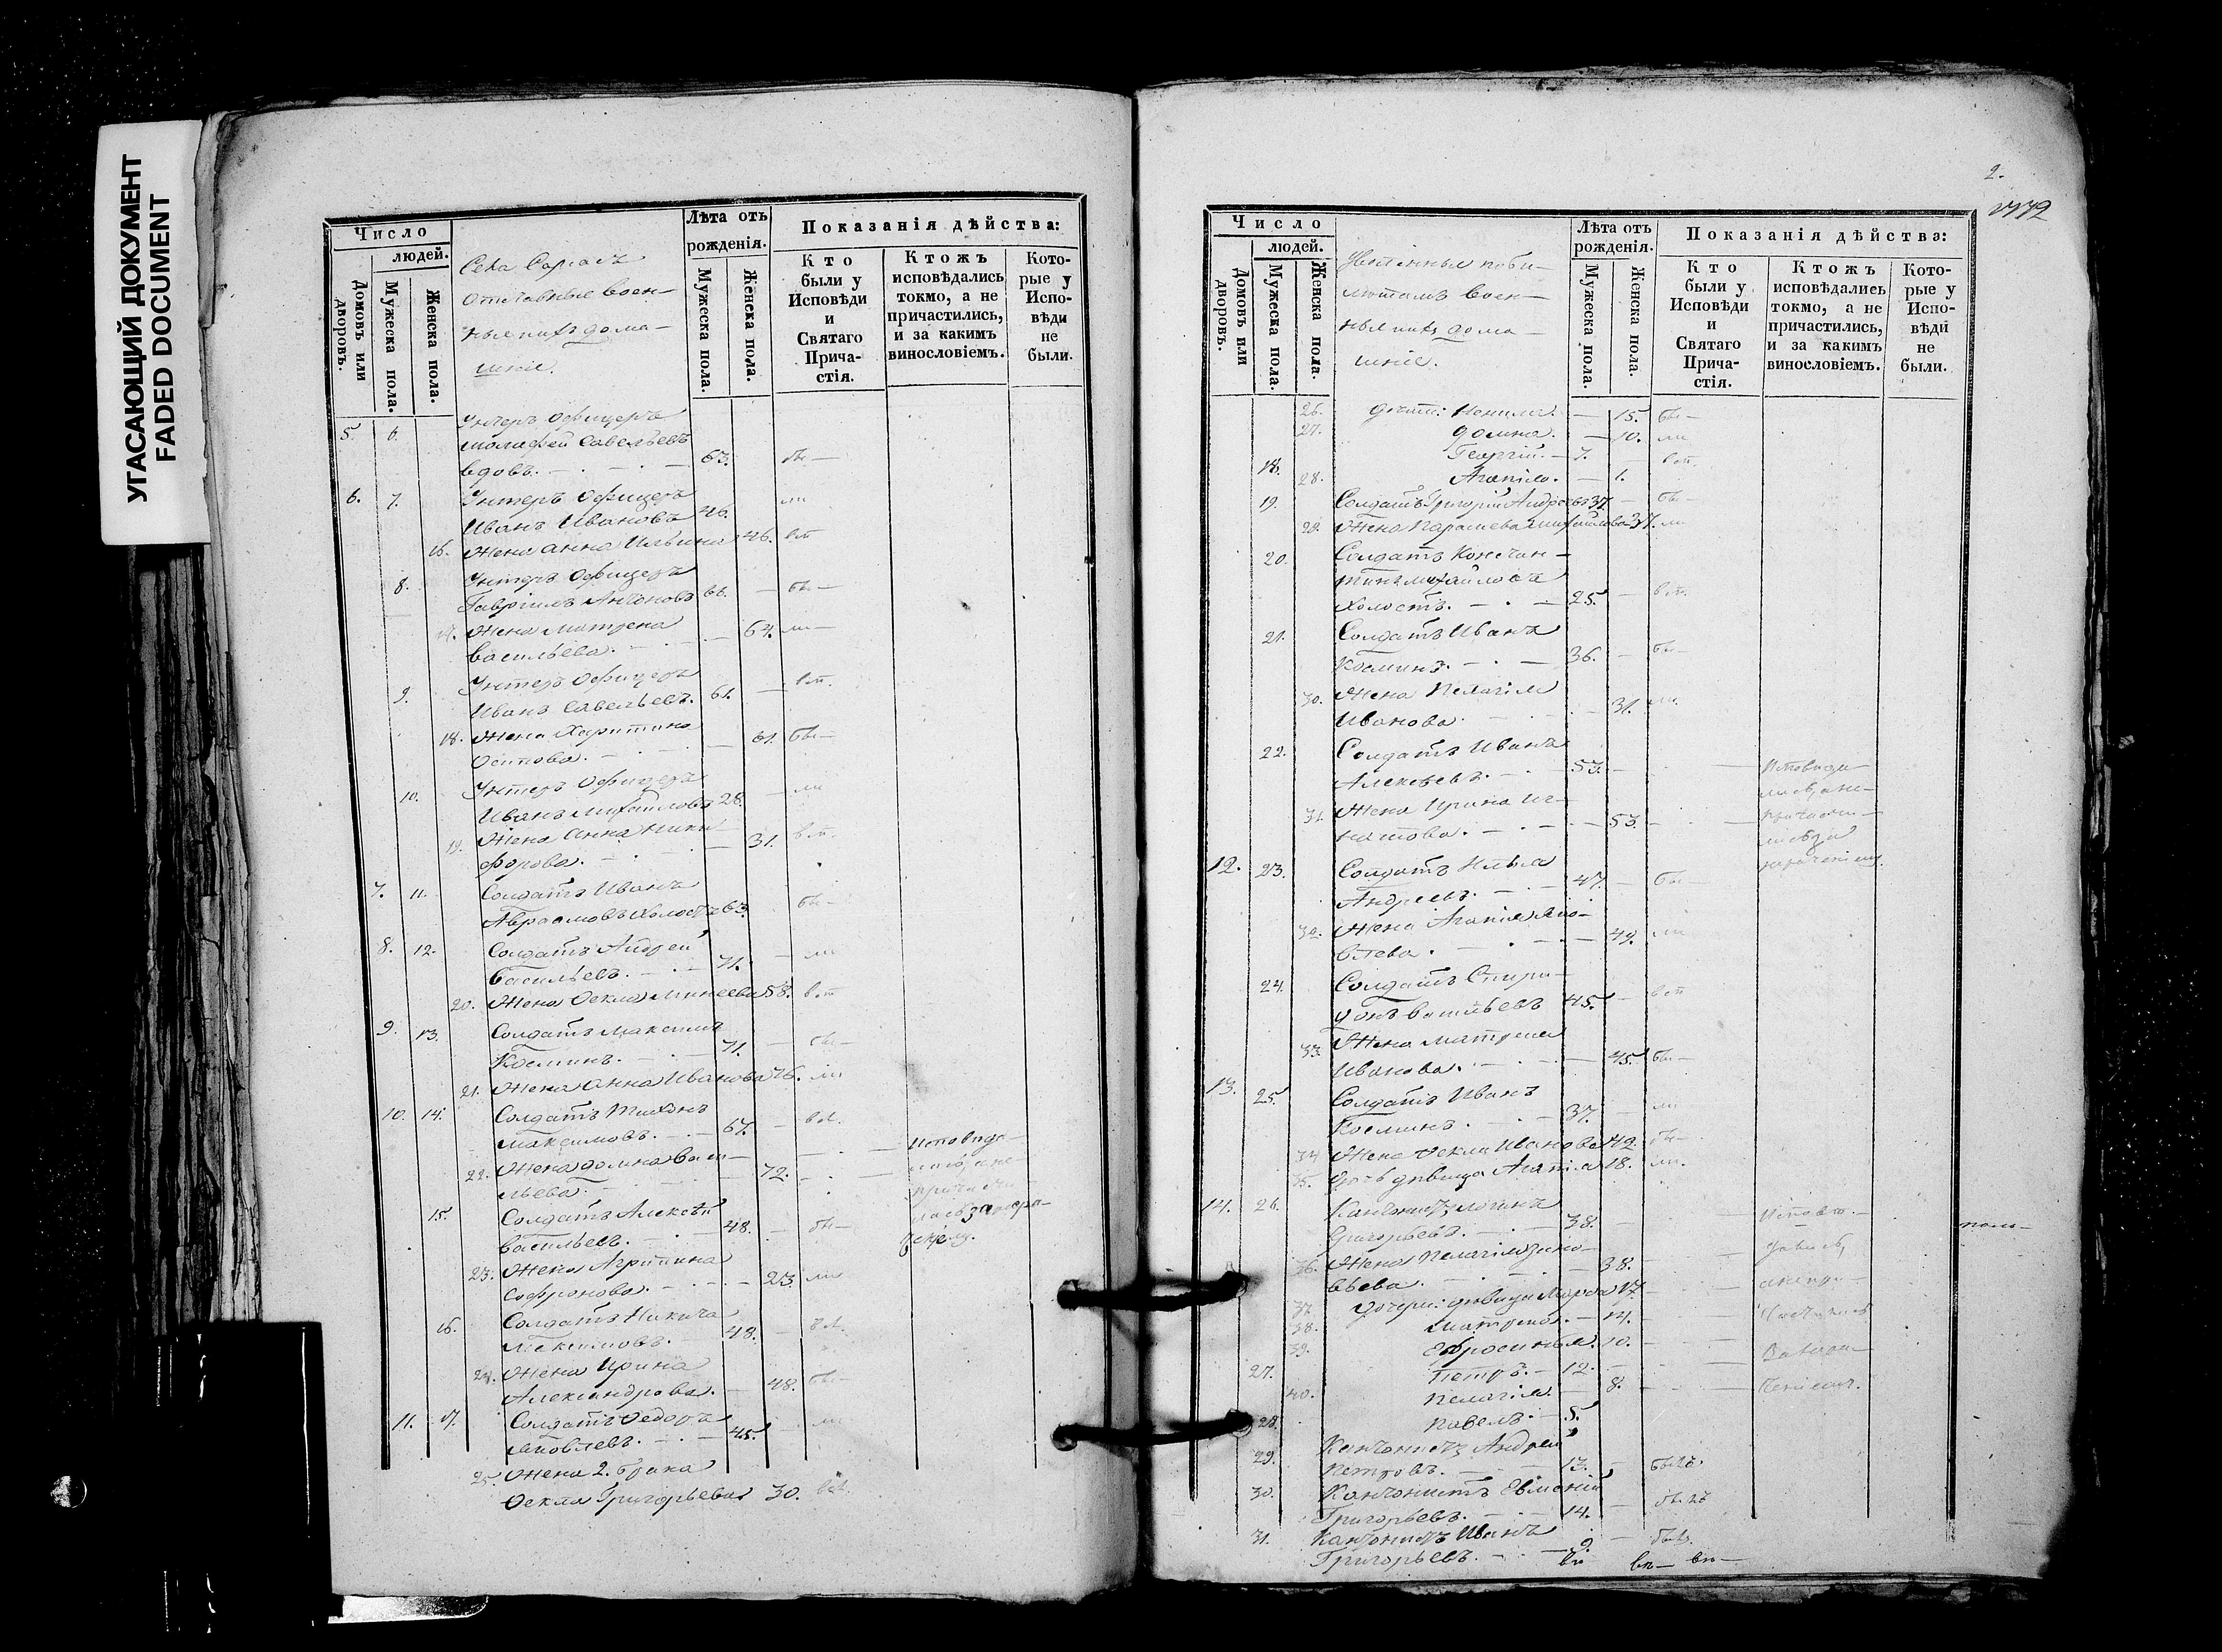 УГАСАЮЩИЙ ДОКУМЕНТ
FADED DOCUMENT
Число
людей.
Домовъ или дворовъ.
Мужеска пола.
Женска пола.
Села
Отставные воен-
ныя ихъ дома-
шніе.
Лѣта отъ
рожденія.
Мужеска пола.
Женска пола.
Показанія дѣйства:
Кто
были у
Исповѣди
и
Святаго
Прича-
стія.
Ктожъ
исповѣдались
токмо, а не
причастились,
и за какимъ
винословіемъ.
Кото-
рые у
Испо-
вѣди
не
были.
Унтеръ Офицеръ
5. 6. Савельевъ
вдовъ. 63. бы-
6. 7. Унтеръ Офицеръ ли
Иванъ Ивановъ 46.
16. Жена Анна Ильина 46. вст
8. Унтеръ Офицеръ
Гавріилъ Антоновъ 66. бы-
17. Жена Матрена 64. ли-
Васильева.
Унтеръ Офицеръ
9. Иванъ Савельевъ. 61. вст.
18. Жена Харитина 61. бы-
Осипова.
10. Унтеръ Офицеръ ли
Иванъ Михайловъ 28.
19. Жена Анна Ники- 31. вст.
форова.
7. 11. Солдатъ Иванъ
Аврамовъ холостъ 63. бы-
8. 12. Солдатъ Андрей ли
Васильевъ. 71.
20. Жена Фекла Минеева 58. вст
9. 13. Солдатъ Максимъ
Косминъ. 71. бы-
21. Жена Анна Иванова 76. ли
10. 14. Солдатъ Тихонъ
Максимовъ. 67. вст. Исповѣда-
22. Жена Домна Васи- лись, а не
льева. 72. причасти
15. Солдатъ Алексѣй лись за
Васильевъ. 48. бы-
23. Жена Агрипина
Софронова. 23. ли
16. Солдатъ Никита
Максимовъ. 48. вст.
24. Жена Ирина
Александрова. 48. бы-
11. 17. Солдатъ Федоръ
Яковлевъ. 45. ли
25. Жена 2. брака
Фекла Григорьева 30. вст.
2.
Число
людей.
Домовъ или дворовъ.
Мужеска пола.
Женска пола.
воен-
ныя ихъ дома-
шніе.
Лѣта отъ
рожденія.
Мужеска пола.
Женска пола.
Показанія дѣйства:
Кто
были у
Исповѣди
и
Святаго
Прича-
стія.
Ктожъ
исповѣдались
токмо, а не
причастились,
и за какимъ
винословіемъ.
Кото-
рые у
Испо-
вѣди
не
были.
26. Дѣти: Ненила 15. бы-
27. Домна. 10. ли
18. Георгій. 7. вст.
28. Агапія. 1.
19. Солдатъ Григорій Андреевъ 37. бы-
29. Жена Параскева Михайлова 37. ли
20. Солдатъ Констан-
тинъ Михайловъ
Холостъ. 25. вст.
21. Солдатъ Иванъ
Косминъ. 36. бы-
30. Жена Пелагія
Иванова. 31. ли
22. Солдатъ Иванъ
Алексѣевъ. 53. Исповѣда-
лись, а не
31. Жена Ирина Иг- Причасти-
натова. 53. лись за
12. 23. Солдатъ Илья
Андреевъ. 47. бы-
32. Жена Агапія Яко-
влева. 49. ли
24. Солдатъ Спири-
донъ Васильевъ 45. вст
33. Жена Матрена
Иванова. 45. бы-
13. 25. Солдатъ Иванъ
Косминъ. 37. ли
34. Жена Фекла Иванова 42. бы-
35. Дочь дѣвица Агапія 18. ли.
14. 26. Кантонистъ
Григорьевъ. 38. Исповѣ-
36. Жена Пелагія Зино- дались,
вьева. 38.
37. Дочери: дѣвица Марфа 17. а не при-
38. Матрена. 14. частились
39. Ефросинья. 10.
27. Петръ. 12.
40. Пелагія. 8.
28. Павелъ. 5.
29. Кантонистъ Андрей
Петровъ. 13. былъ.
30. Кантонистъ Евменій
Григорьевъ. 14. былъ
31. Кантонистъ Иванъ
Григорьевъ. 9. былъ.